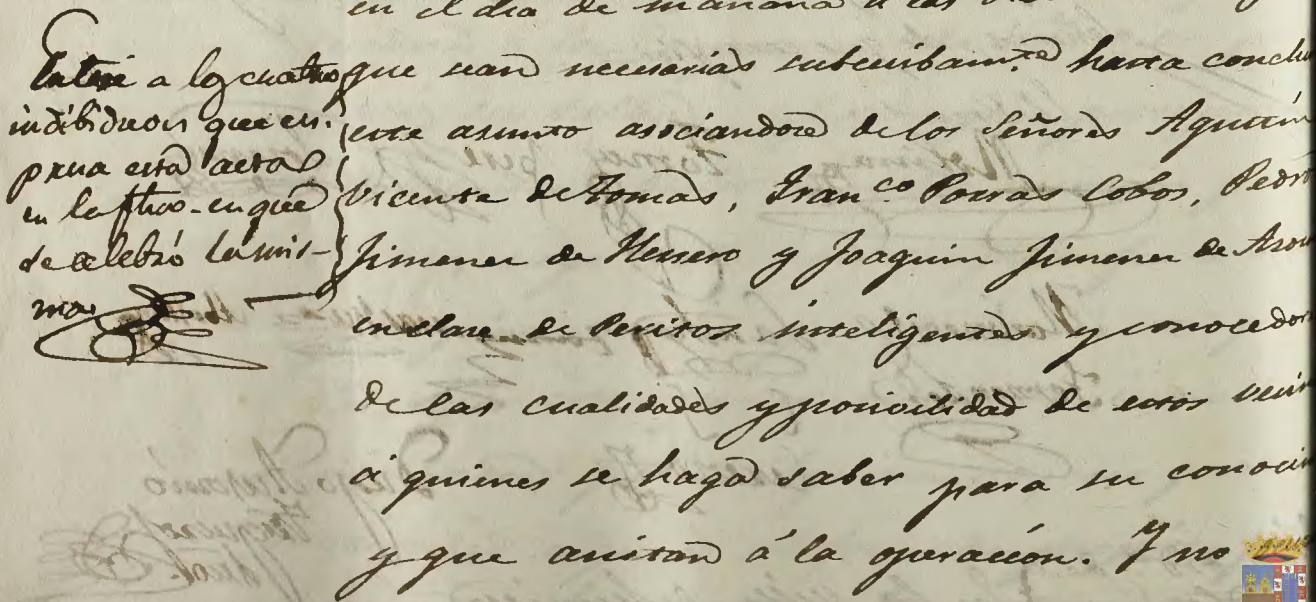 en el dia de mañana a las
Enteré a los cuatro
indibiduos que es-
presa esta acta
en la
de celebró la mis-
ma
que sean necesarias subcesibam.te hasta conclu
este asunto asociandose de los Señores Agustin
Vicente de Tomas, Fran.co Porras Cobos, Pedro
Jimenez de Herrero y Joaquin Jimenez de
en clase de Peritos inteligentes y conocedor
de las cualidades y posivilidad de estos veci
á quienes se haga saber para su conoci
y que asistan á la operacion. Y no